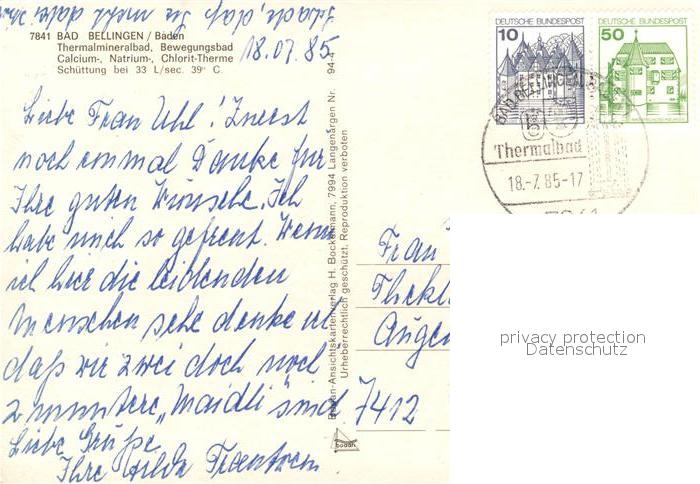 Schade, daß Sie nicht dabei
7841 BAD BELLINGEN / Baden
Thermalmineralbad, Bewegungsbad
Calcium-, Natrium-, Chlorit-Therme
Schüttung bei 33 L/sec. 39° C.
18.07.85
Liebe Frau Uhl! Zuerst
noch einmal Danke für
Ihre guten Wünsche. Ich
habe mich so gefreut. Wenn
ich hier die leidenden
Menschen sehe denke ich
daß wir zwei doch noch
2 muntere „Maidli" sind
Liebe Grüße
Ihre Hilda
94-4
Bodan-Ansichtskartenverlag H. Bockelmann, 7994 Langenargen Nr.
Urheberrechtlich geschützt, Reproduktion verboten
bodan
DEUTSCHE BUNDESPOST
10
DEUTSCHE BUNDESPOST
50
BAD BELLINGEN
Thermalbad
18.-7.85-17
7841
Frau
Thekl
Augen
7412
privacy protection
Datenschutz